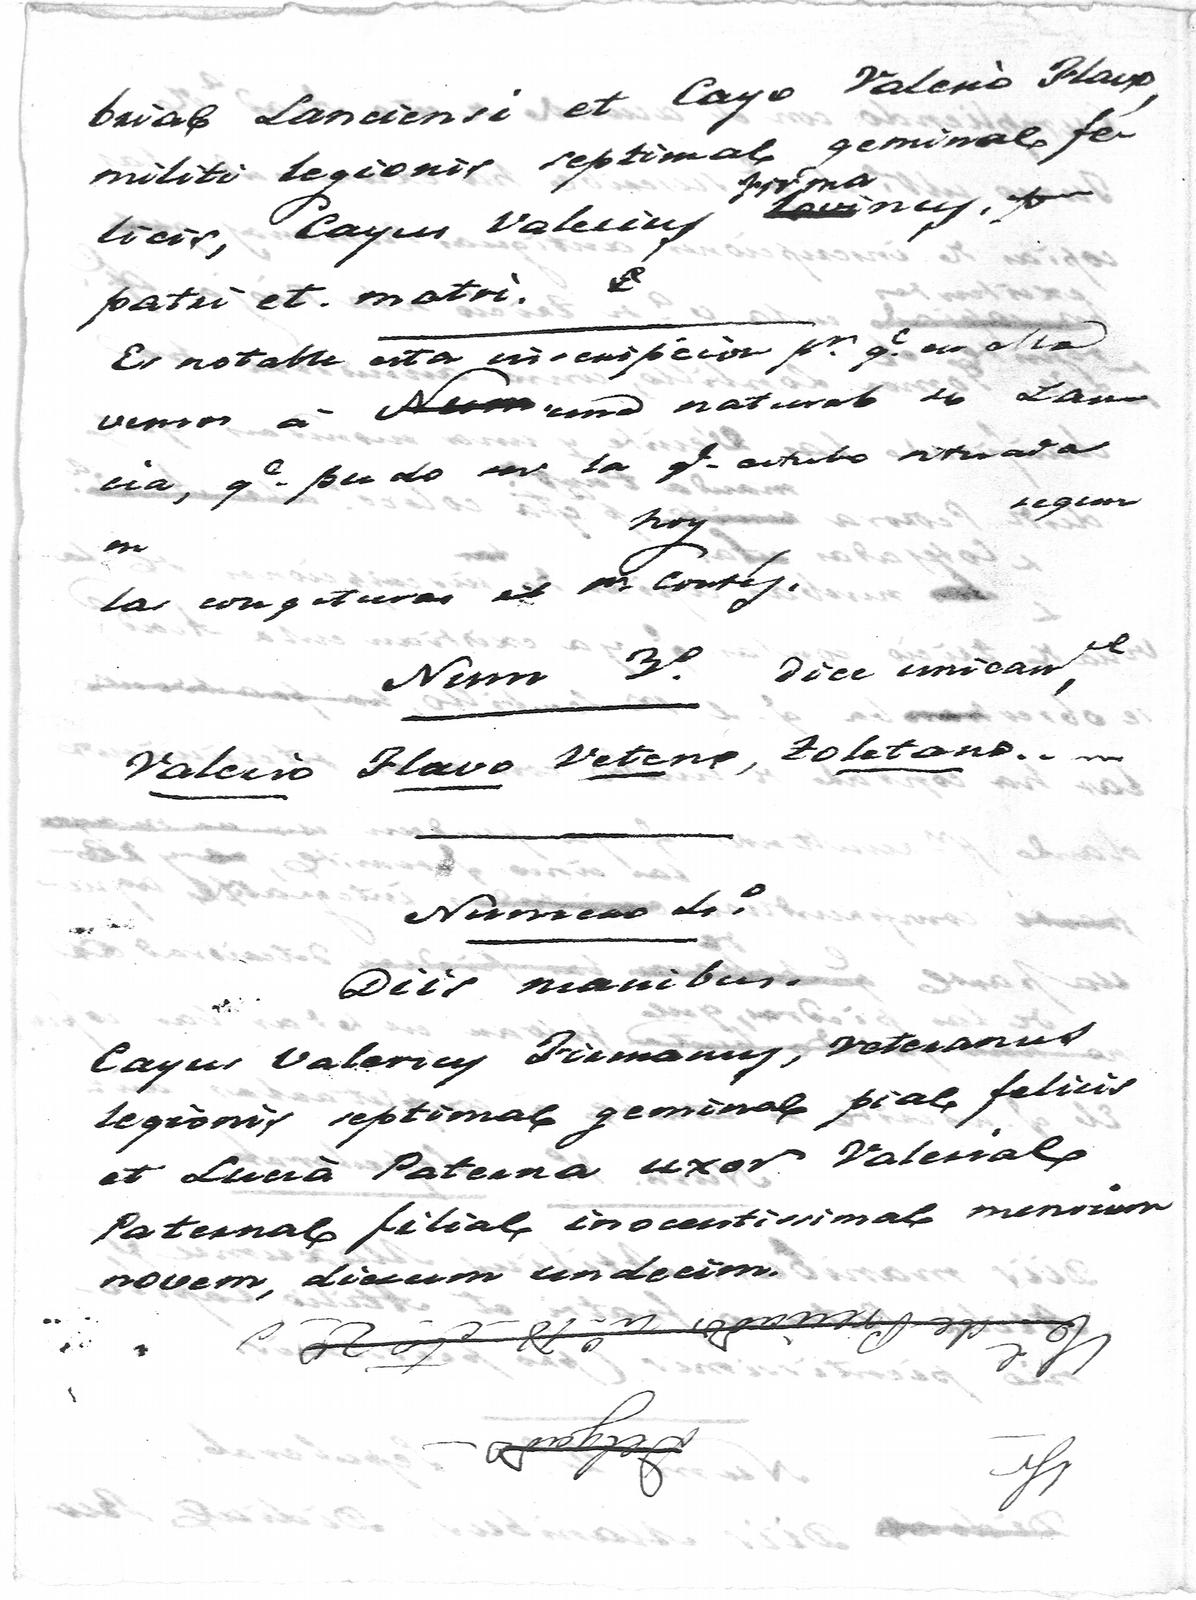 briae Lanciensi et Cayo Valerio Flavo,
militi legionis septimae geminae fe-
firma
licis, Cayus Valerius nus,
patri et. matri.
Es notable esta inscripcion pr. qe. en ella
vemos á Num una natural de Lan
cia, qe. pudo ser la qe. estubo situada
en hoy segun
las congeturas el Sr. Cortés.
Num 3º. Dice unicamte,
Valerio Flavo Veteno, Toletano...
Numero 4.º
Diis manibus.
Cayus Valerius Firmanus, veteranus
legionis septimae geminae piae felicis
et Lucia Paterna uxor Valeriae
Paternae filiae inocentissimae mensium
novem, dierum undecim.
Delgado
Sr.